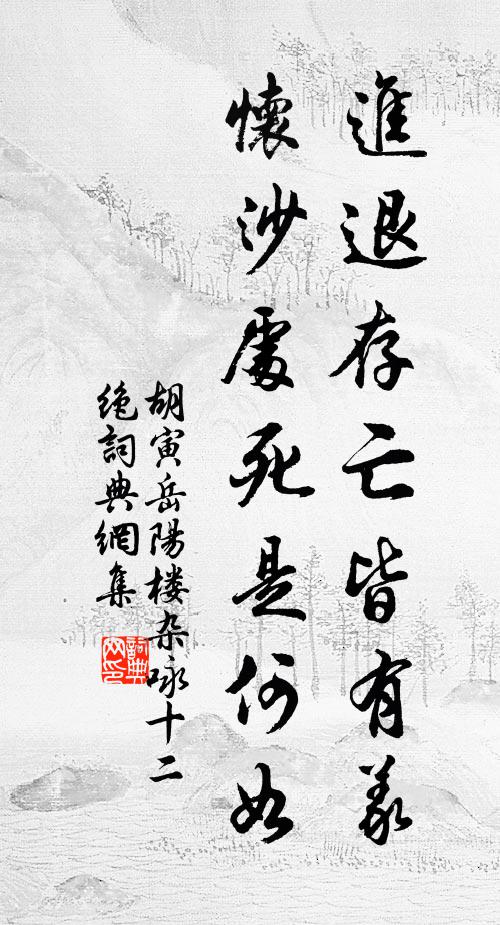 進退存亡皆有義
懷沙處死是何如
胡寅岳陽楼杂咏十二
绝詞典網集
詞典